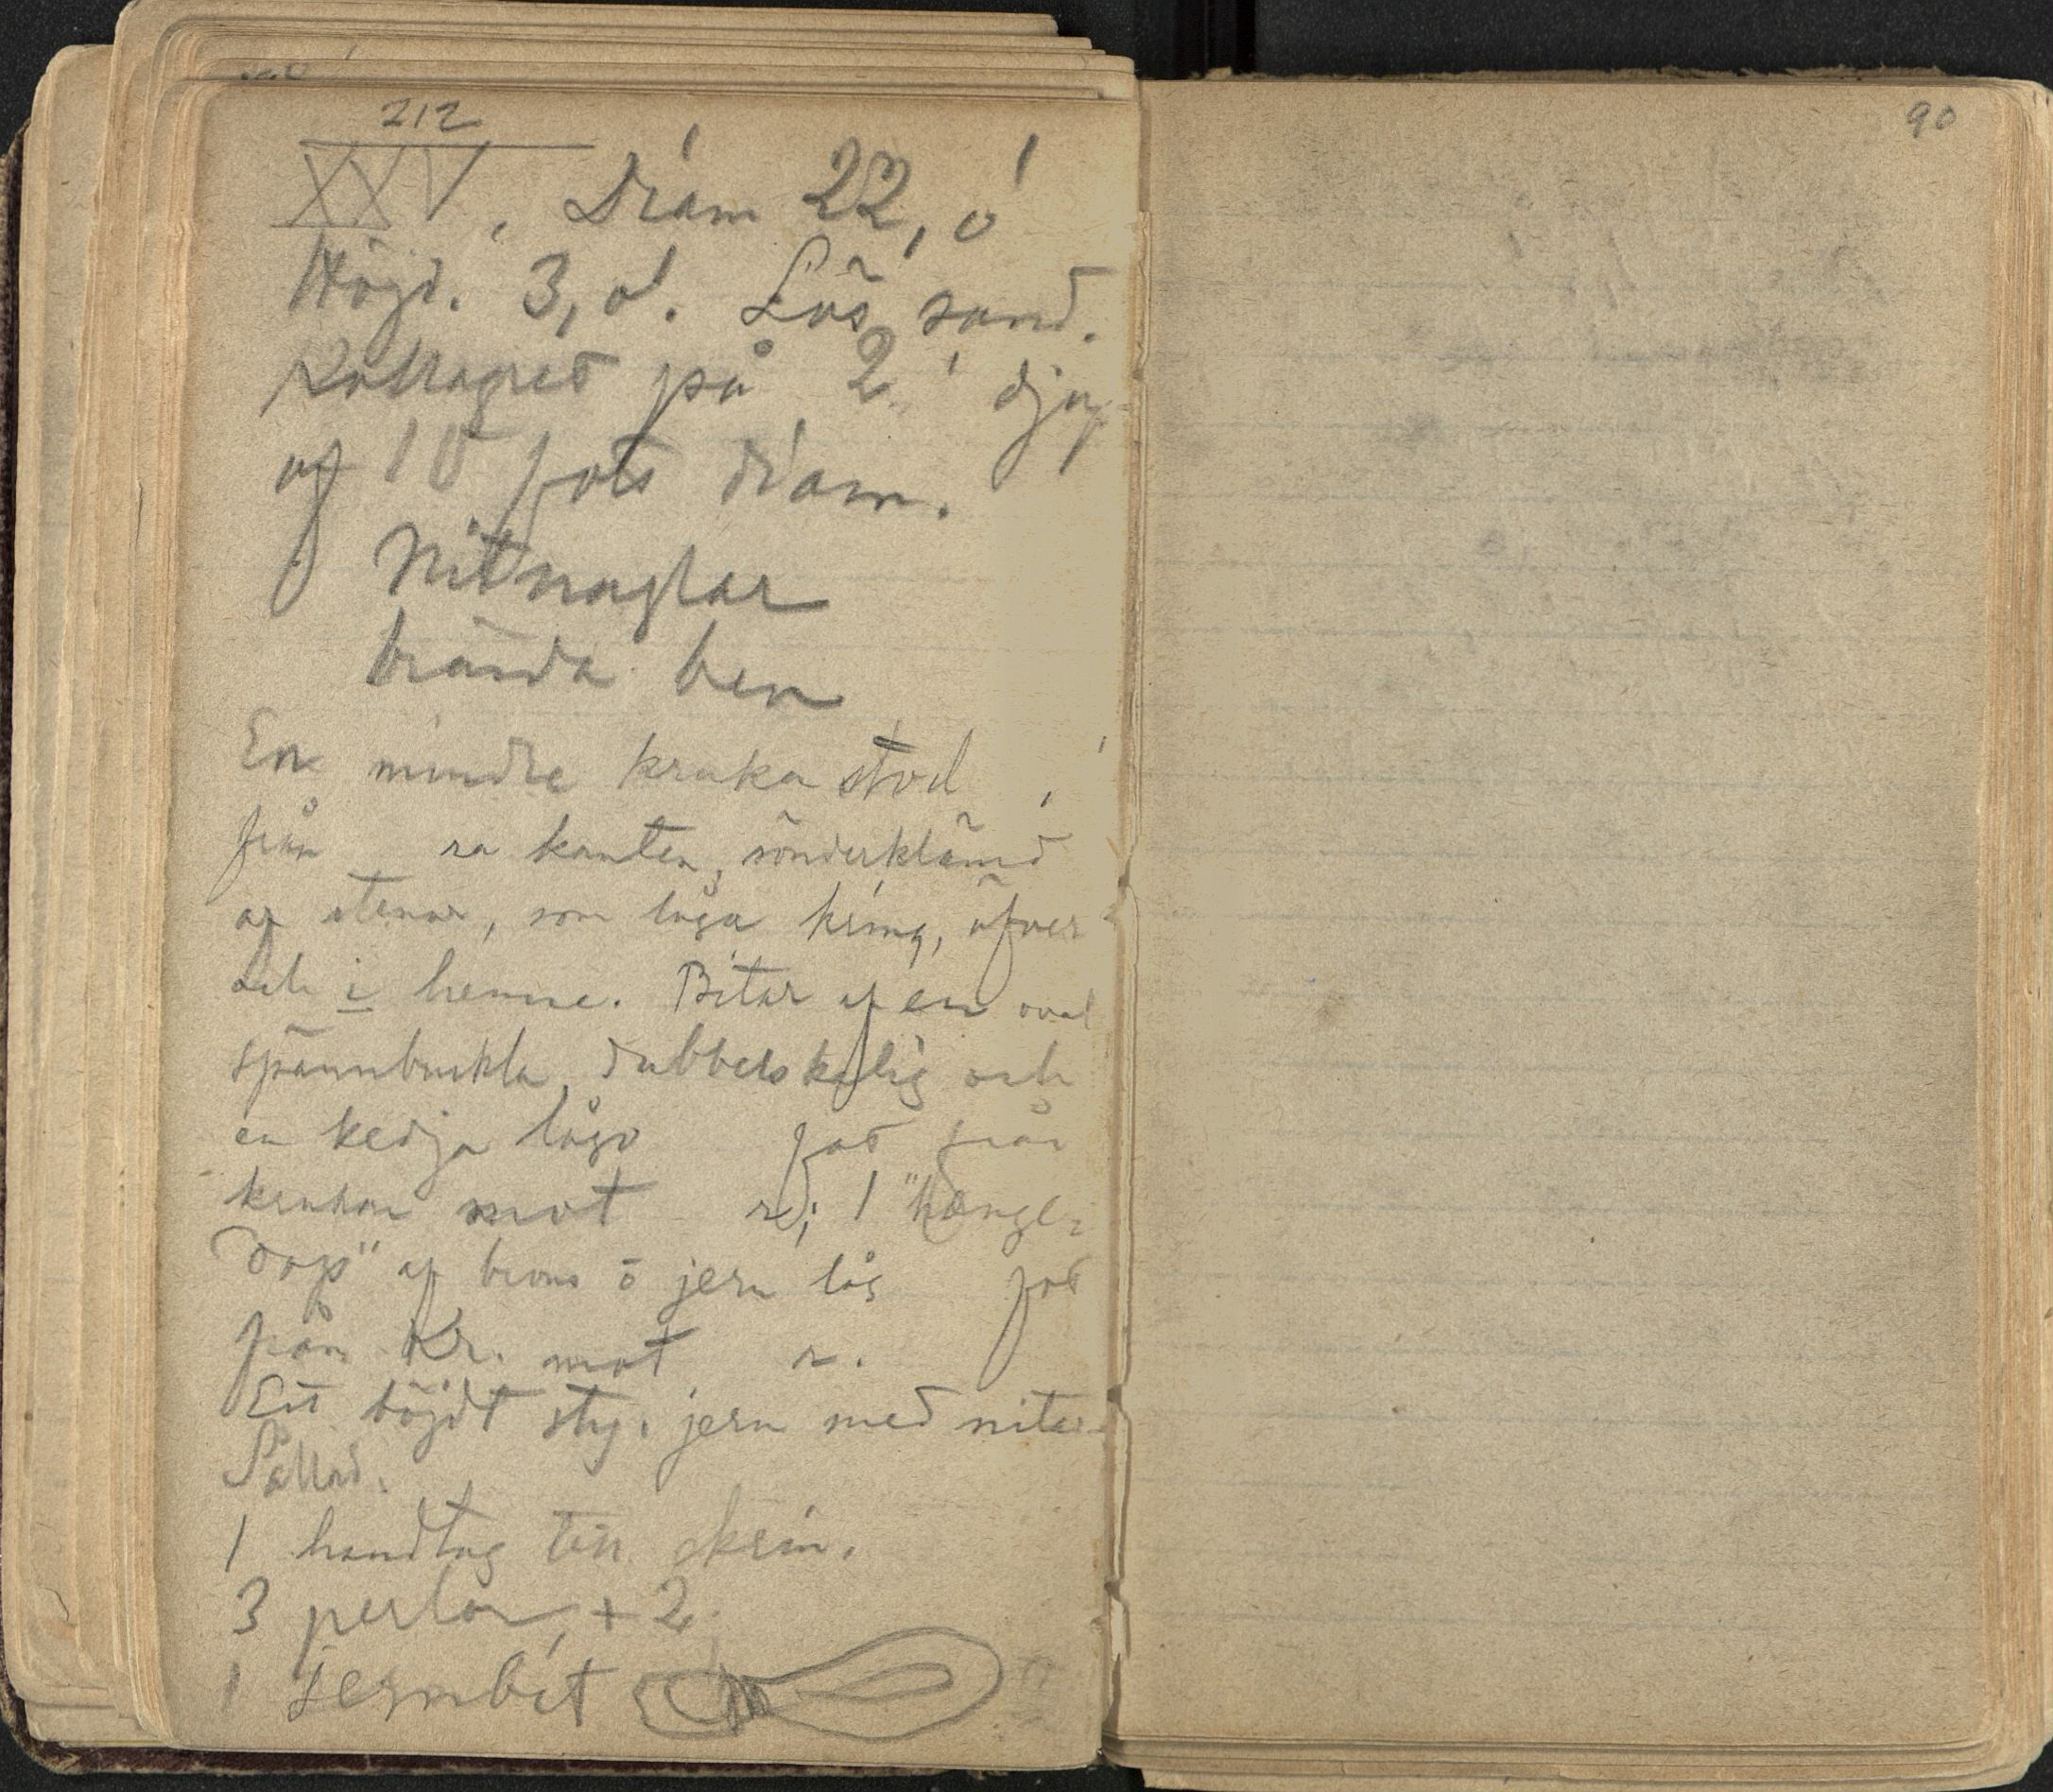 212
XXV. Diam 22,0'
Höjd. 3,0'. Lös sand.
Kollagret på 2' djup
af 10 fots diam.
Nitnaglar
brända ben
En mindre kruka stod , '
från ra kanten, sönderklämd
af stenar, som låga kring, öfver
och i henne. Bitar af en oval
spännbuckla, dubbelskalig och
en kedja lågo fot från
krukan mot r; 1 "hänge-
dop" af brons o jern låg fot
från Kr. mot r.
Ett böjdt sty. jern med nitar
Sållad.
1 handtag till skrin.
3 perlor, + 2
1 jernbit
90